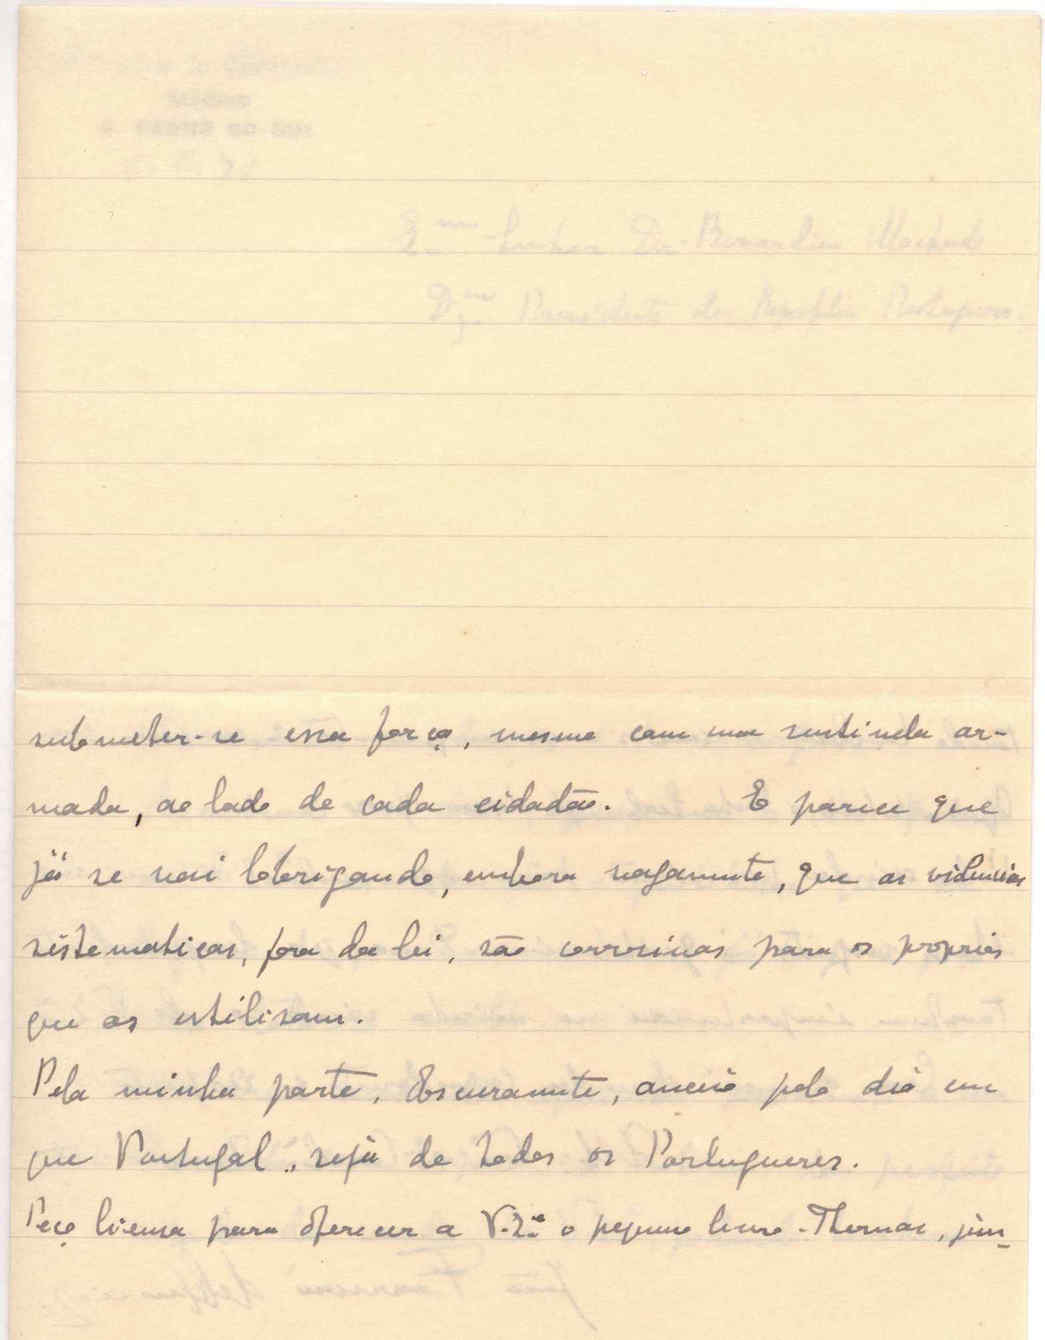 Exmo Senhor Dr. Bernardino Machado
Dmo Presidente da Republica Portuguesa.
submeter-se essa força, mesmo com uma sentinela ar-
mada, ao lado de cada cidadão. E parece que
já se vai lobrigando, embora vagamente, que as violencias
sistematicas, fora da lei, são corrosivas para os proprios
que as utilisam.
Pela minha parte, obscuramente, anceio pelo dia em
que Portugal, seja de todos os Portugueses.
Peço licença para oferecer a V. Ex.ª o pequeno livro - Thomar, jun-